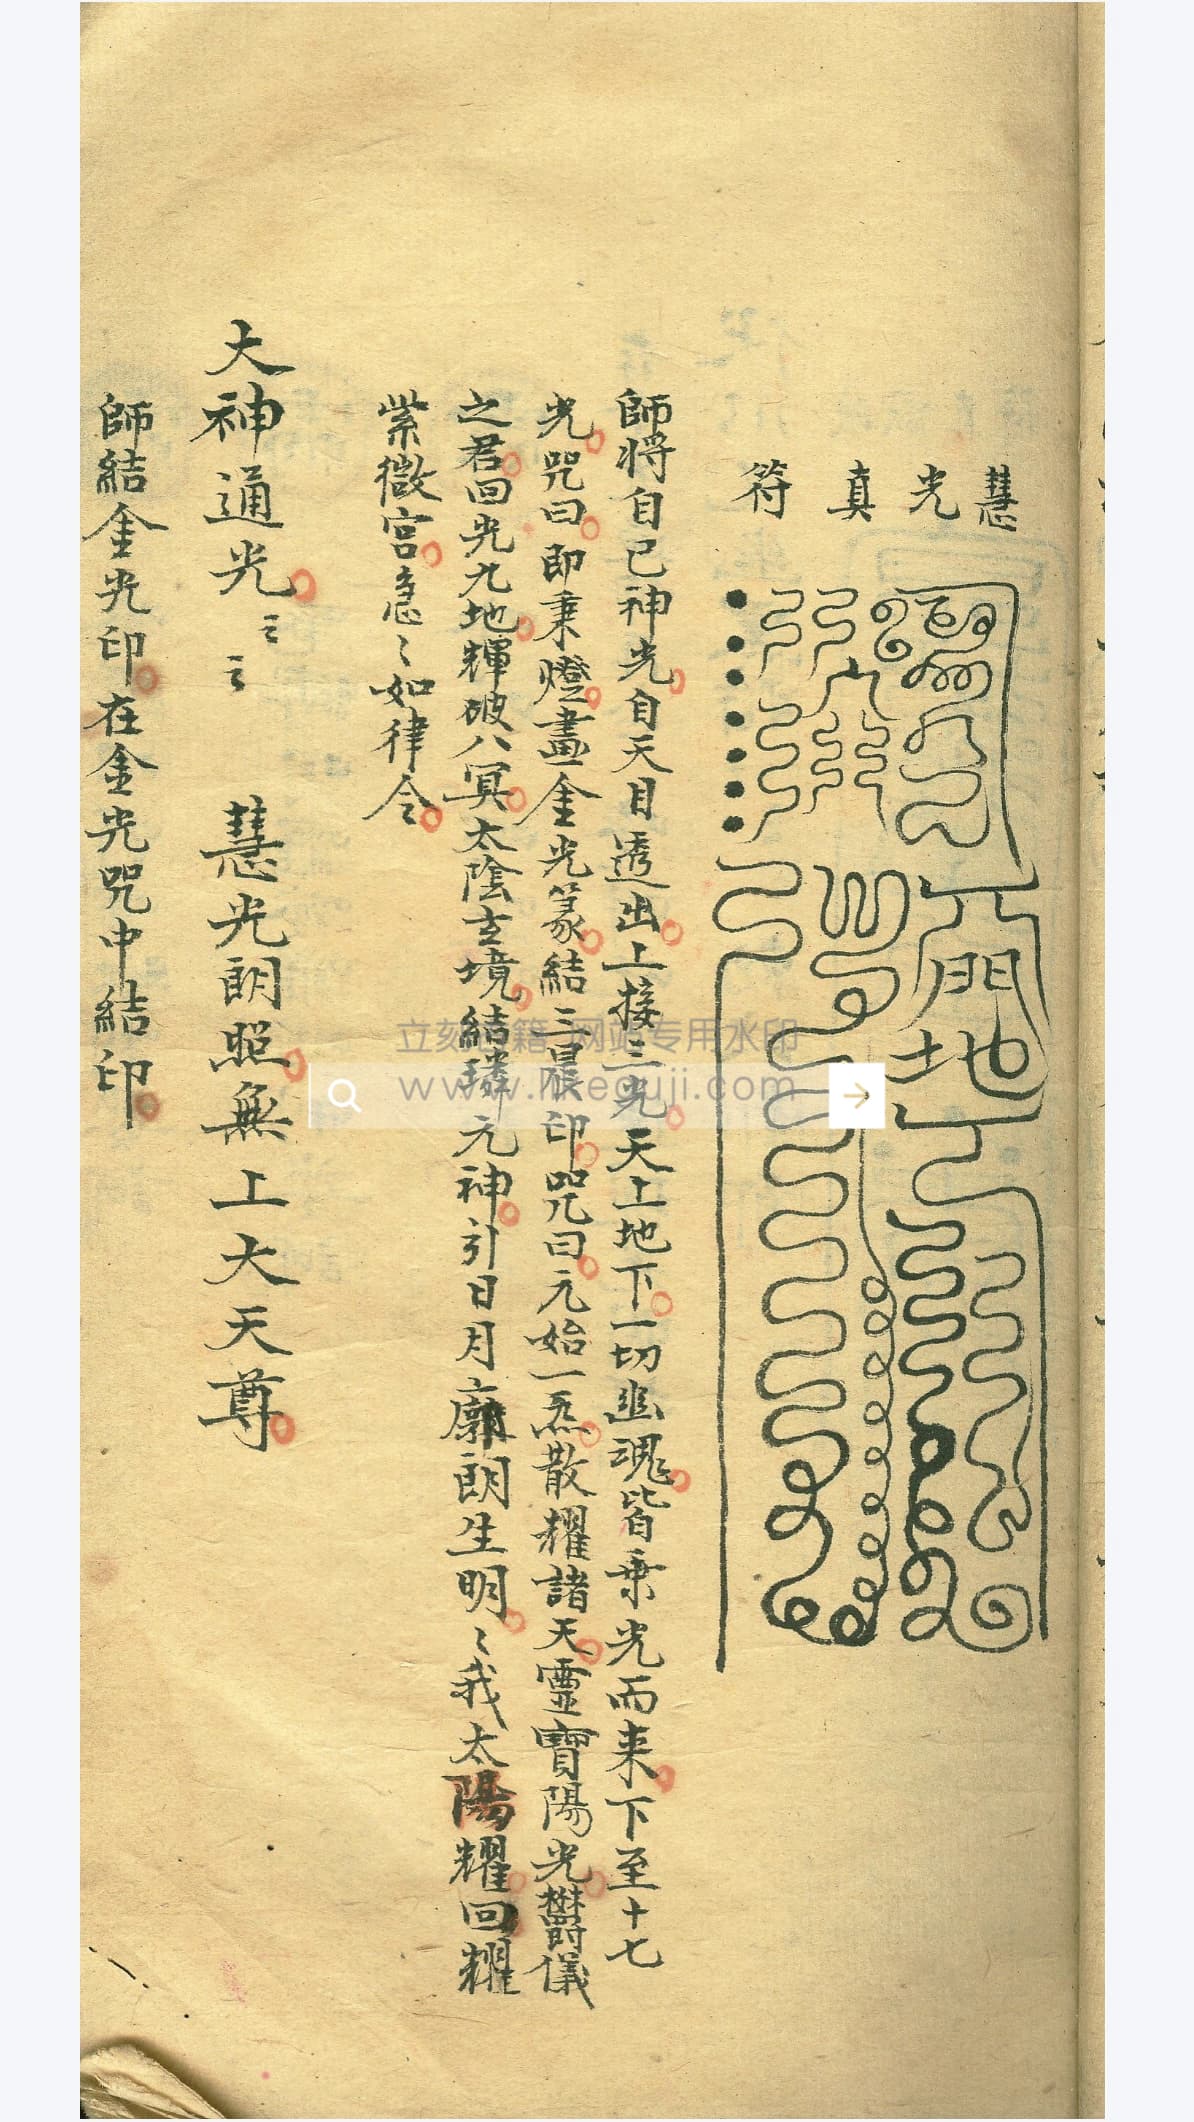 慧光真符
師將自已神光自天目透出上接三光天上地下一切幽魂皆乗光而来下至十七
光咒曰即秉燈畫金光篆結三晨印咒曰元始一炁散耀諸天靈寶陽光欝儀
之君回光九地輝破八冥太陰玄境結璘元神引日月廓朗生明〻我太陽耀回耀
紫微宮急〻如律令
大神通光 慧光朗照無上大天尊
師結金光印在金光咒中結印
立刻古籍 网站专用水印
www.likeguji.com